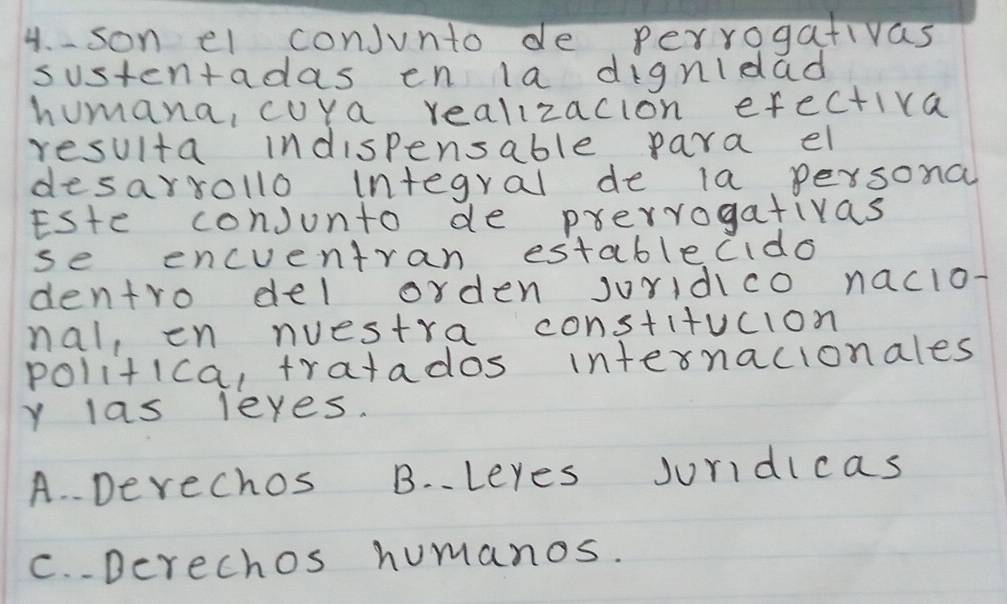 4.- son el conjunto de perrogativas
sustentadas en la dignidad
humana, cuya realizacion efectiva
resulta indispensable para el
desarrollo integral de la persona
Este conjunto de prerrogativas
se encuentran establecido
dentro del orden juridico nacio-
nal, en nuestra constitucion
politica, tratados internacionales
y las leyes.
A.. Derechos B.. Leyes Juridicas
C.. Derechos humanos.